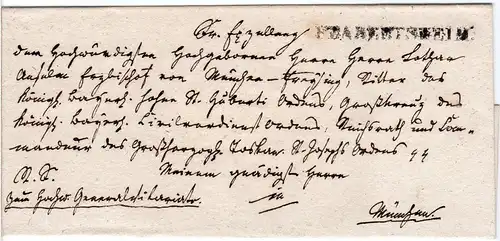 Sr. Exzellenz
dem Hochwürdigsten Hochgebornen Herrn Herrn Lothar
Anselm Erzbischof von München-Freysing, Ritter des
Königl. Bayerh. hohen St. Huberti Ordens, Großkreuz des
Königl. Bayerh. Civilverdienst Ordens, Reichsrath und Com-
mandeur des Großherzogl. Toskan. St. Josephs Ordens
Meinem gnädigst Herrn
zum Hochw. Generalvikariate.
in
München.